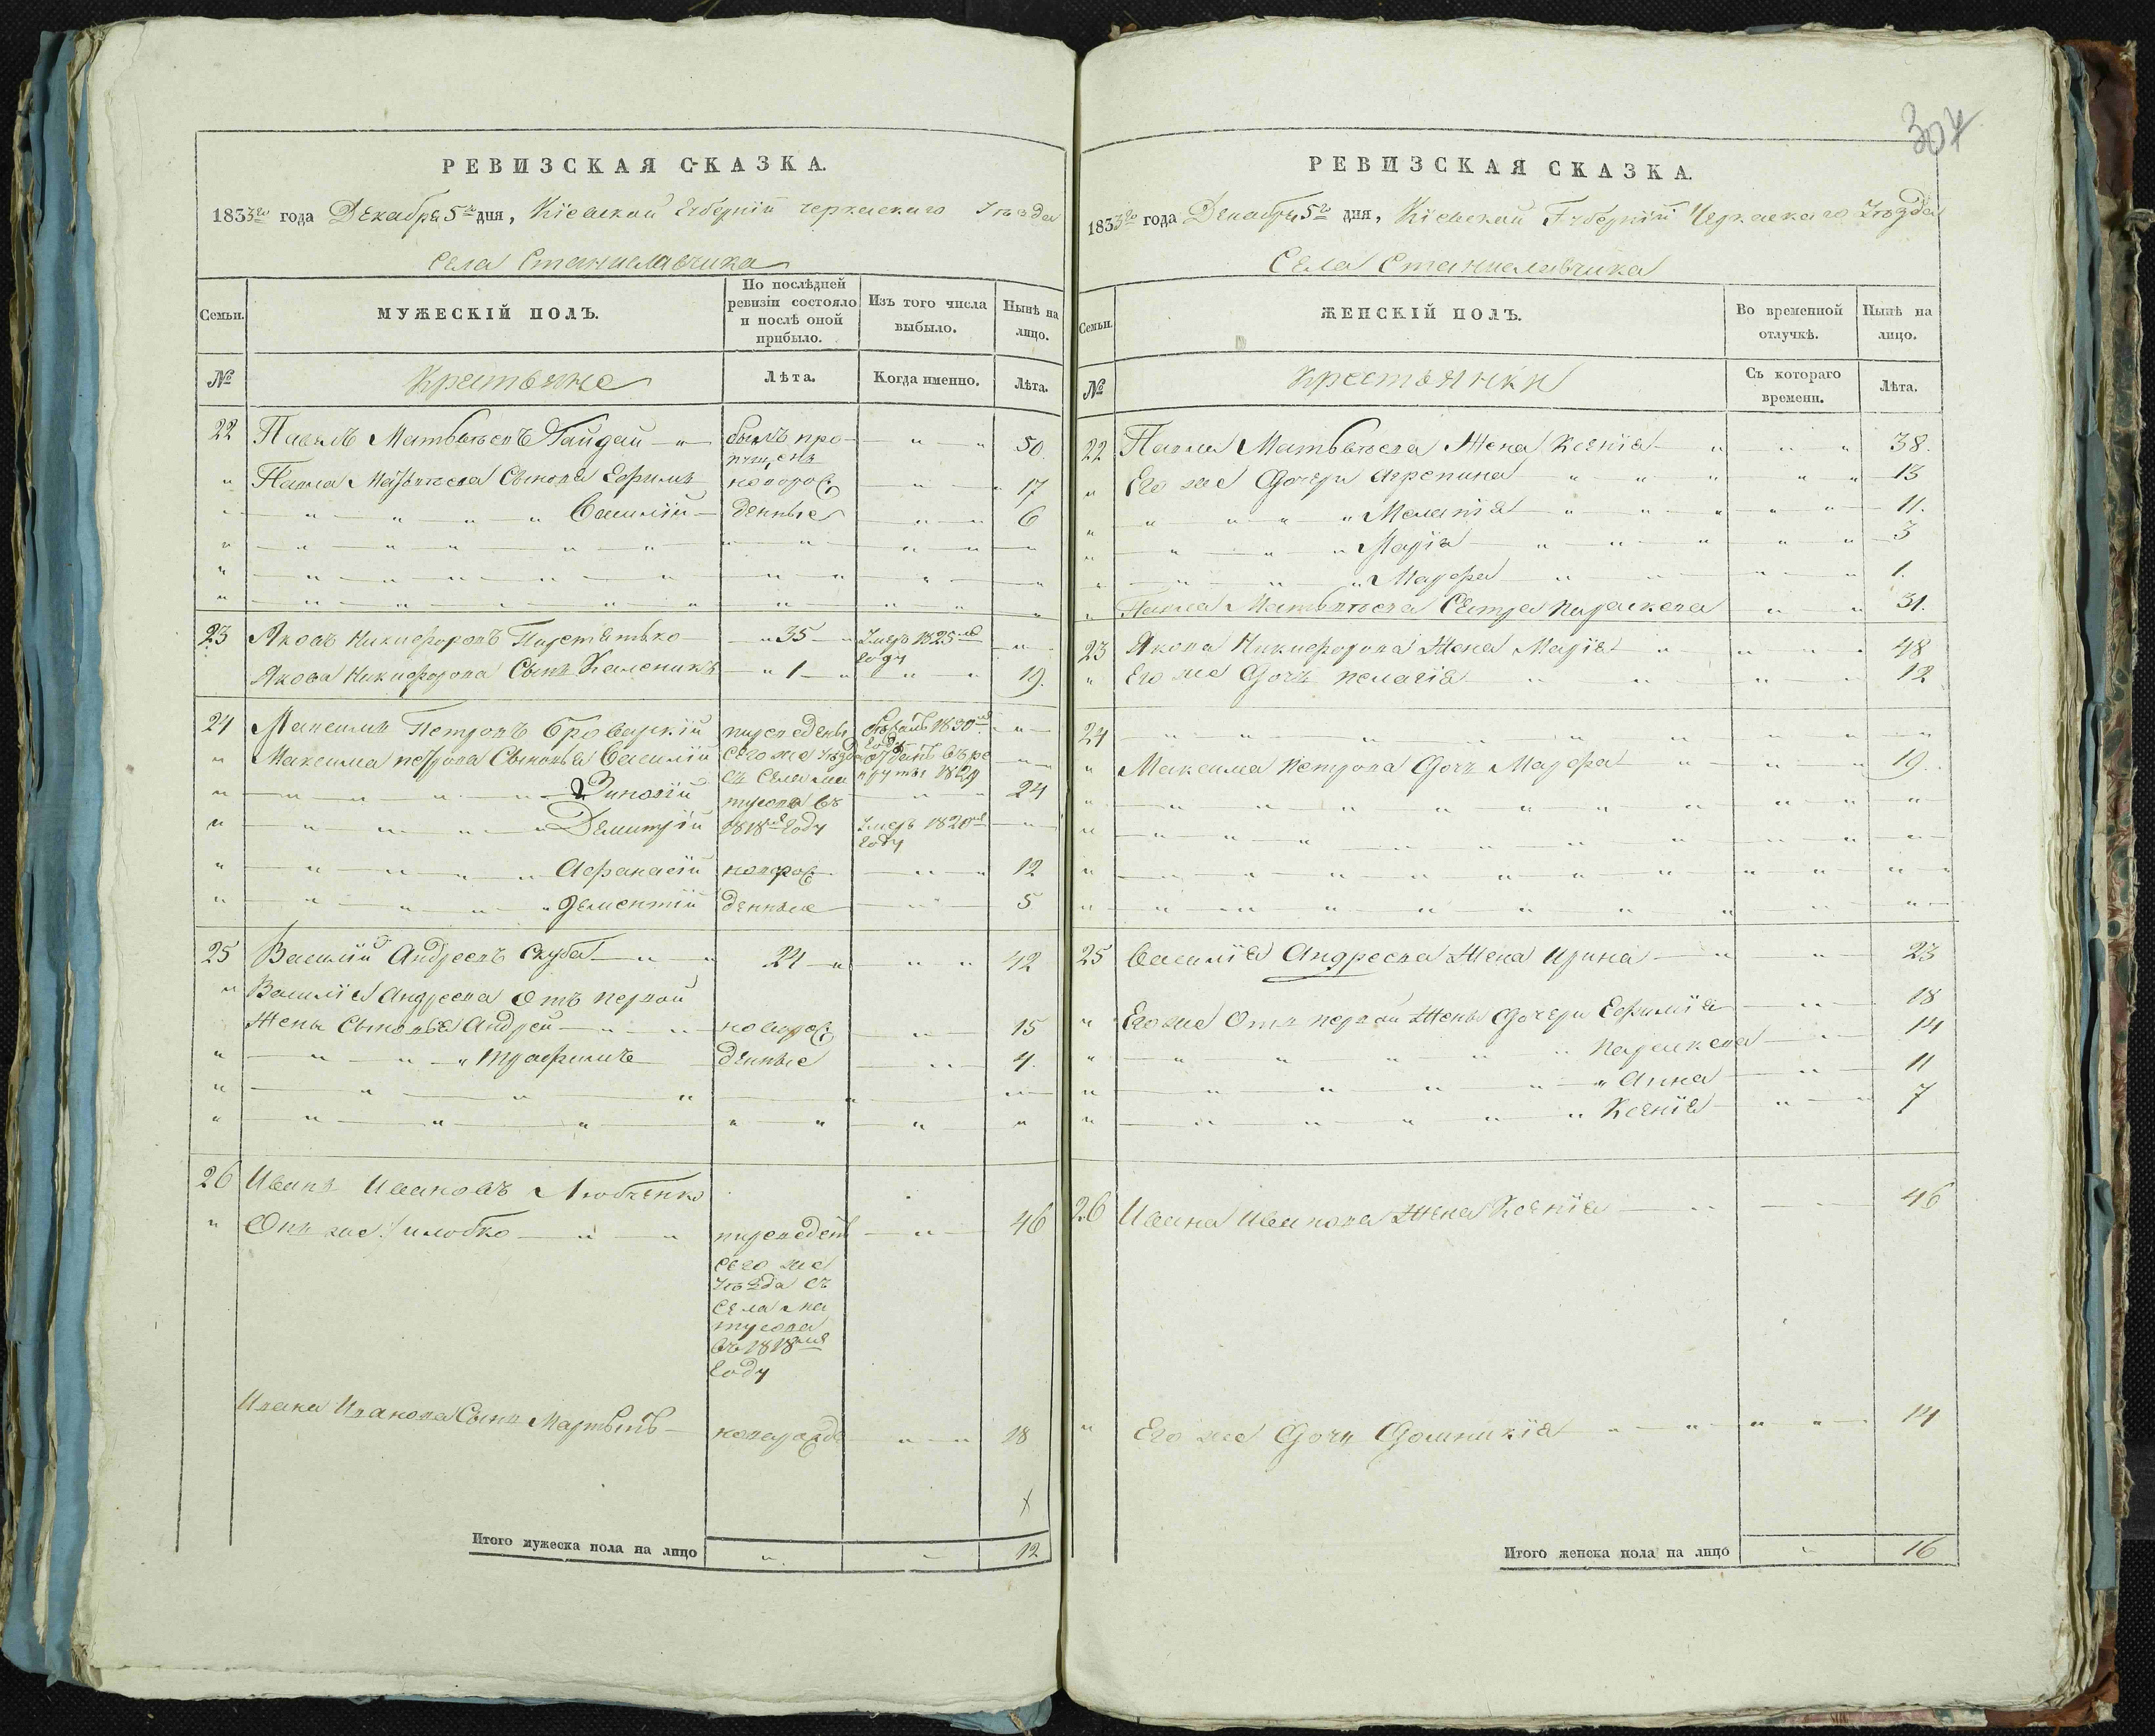 РЕВИЗСКАЯ СКАЗКА.
1833го года Декабря 5го дня, Кіевской Губерніи Черкаскаго Уѣзда
Села Станиславчика
Семьи.
МУЖЕСКІЙ ПОЛЪ.
По послѣдней ревизіи состояло и послѣ оной прибыло.
Изъ того числа выбыло.
Нынѣ на лицо.
№
Крестьяне
Лѣта.
Когда именно.
Лѣта.
22 Павелъ Матвѣевъ Гайдай былъ пропущенъ 50.
Павла Матвѣева Сыновья Ефимъ новорож 17
Василій денные 6
23 Яковъ Никифоровъ 35 Умеръ 1825го Году
Якова Никифорова Сынъ Каленикъ 1 19.
24 Максимъ Петровъ Броварскій переведены Бѣжалъ 1830го Году
Максима Петрова Сыновья Василій сего же Уѣзда отданъ въ ре
Зиновій съ Села Ма круты 1829 24
тусова въ
Демитрій 1818мъ Году Умеръ 1820го Году
Афанасій новорож 12
Дементій денные 5
25 Василій Андреевъ Скуба 24 42
Василія Андреева Отъ первой
Жены Сыновья Андрей новорож 15
Трофимъ денные 4.
26 Иванъ Ивановъ Любченко
Онъ же Шлобко переведенъ 46
сего же
Уѣзда съ
Села Ма
тусова
въ 1818мъ
Году
Ивана Иванова Сынъ Мартынъ новорожде 18
х
Итого мужеска пола на лицо 12
307
РЕВИЗСКАЯ СКАЗКА.
1833го года Декабря 5го дня, Кіевской Губерніи Черкаскаго Уѣзда
Села Станиславчика
Семьи.
ЖЕНСКІЙ ПОЛЪ.
Во временной отлучкѣ.
Нынѣ на лицо.
№
Крестьянки
Съ котораго времени.
Лѣта.
22 Павла Матвѣева Жена Ксенія 38.
Его же Дочери Агрепина 13
Меланія 11.
Марія 3
Марфа 1.
Павла Матвѣева Сестра Параскева 31.
23 Якова Никифорова Жена Марія 48
Его же Дочь Пелагія 12
24
Максима Петрова Дочь Марфа 19.
25 Василія Андреева Жена Ирина 23
Его же Отъ первой Жены Дочери Ефимія 18
Параскева 14
Анна 11
Ксенія 7
26 Ивана Иванова Жена Ксенія 46
Его же Дочь Домникія 14
Итого женска пола на лицо 16